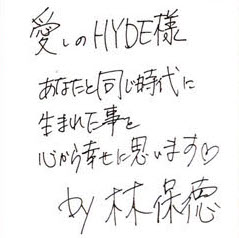 愛しのHYDE様
あなたと同じ時代に
生まれた事を
心から幸せに思います♡
by 林保徳